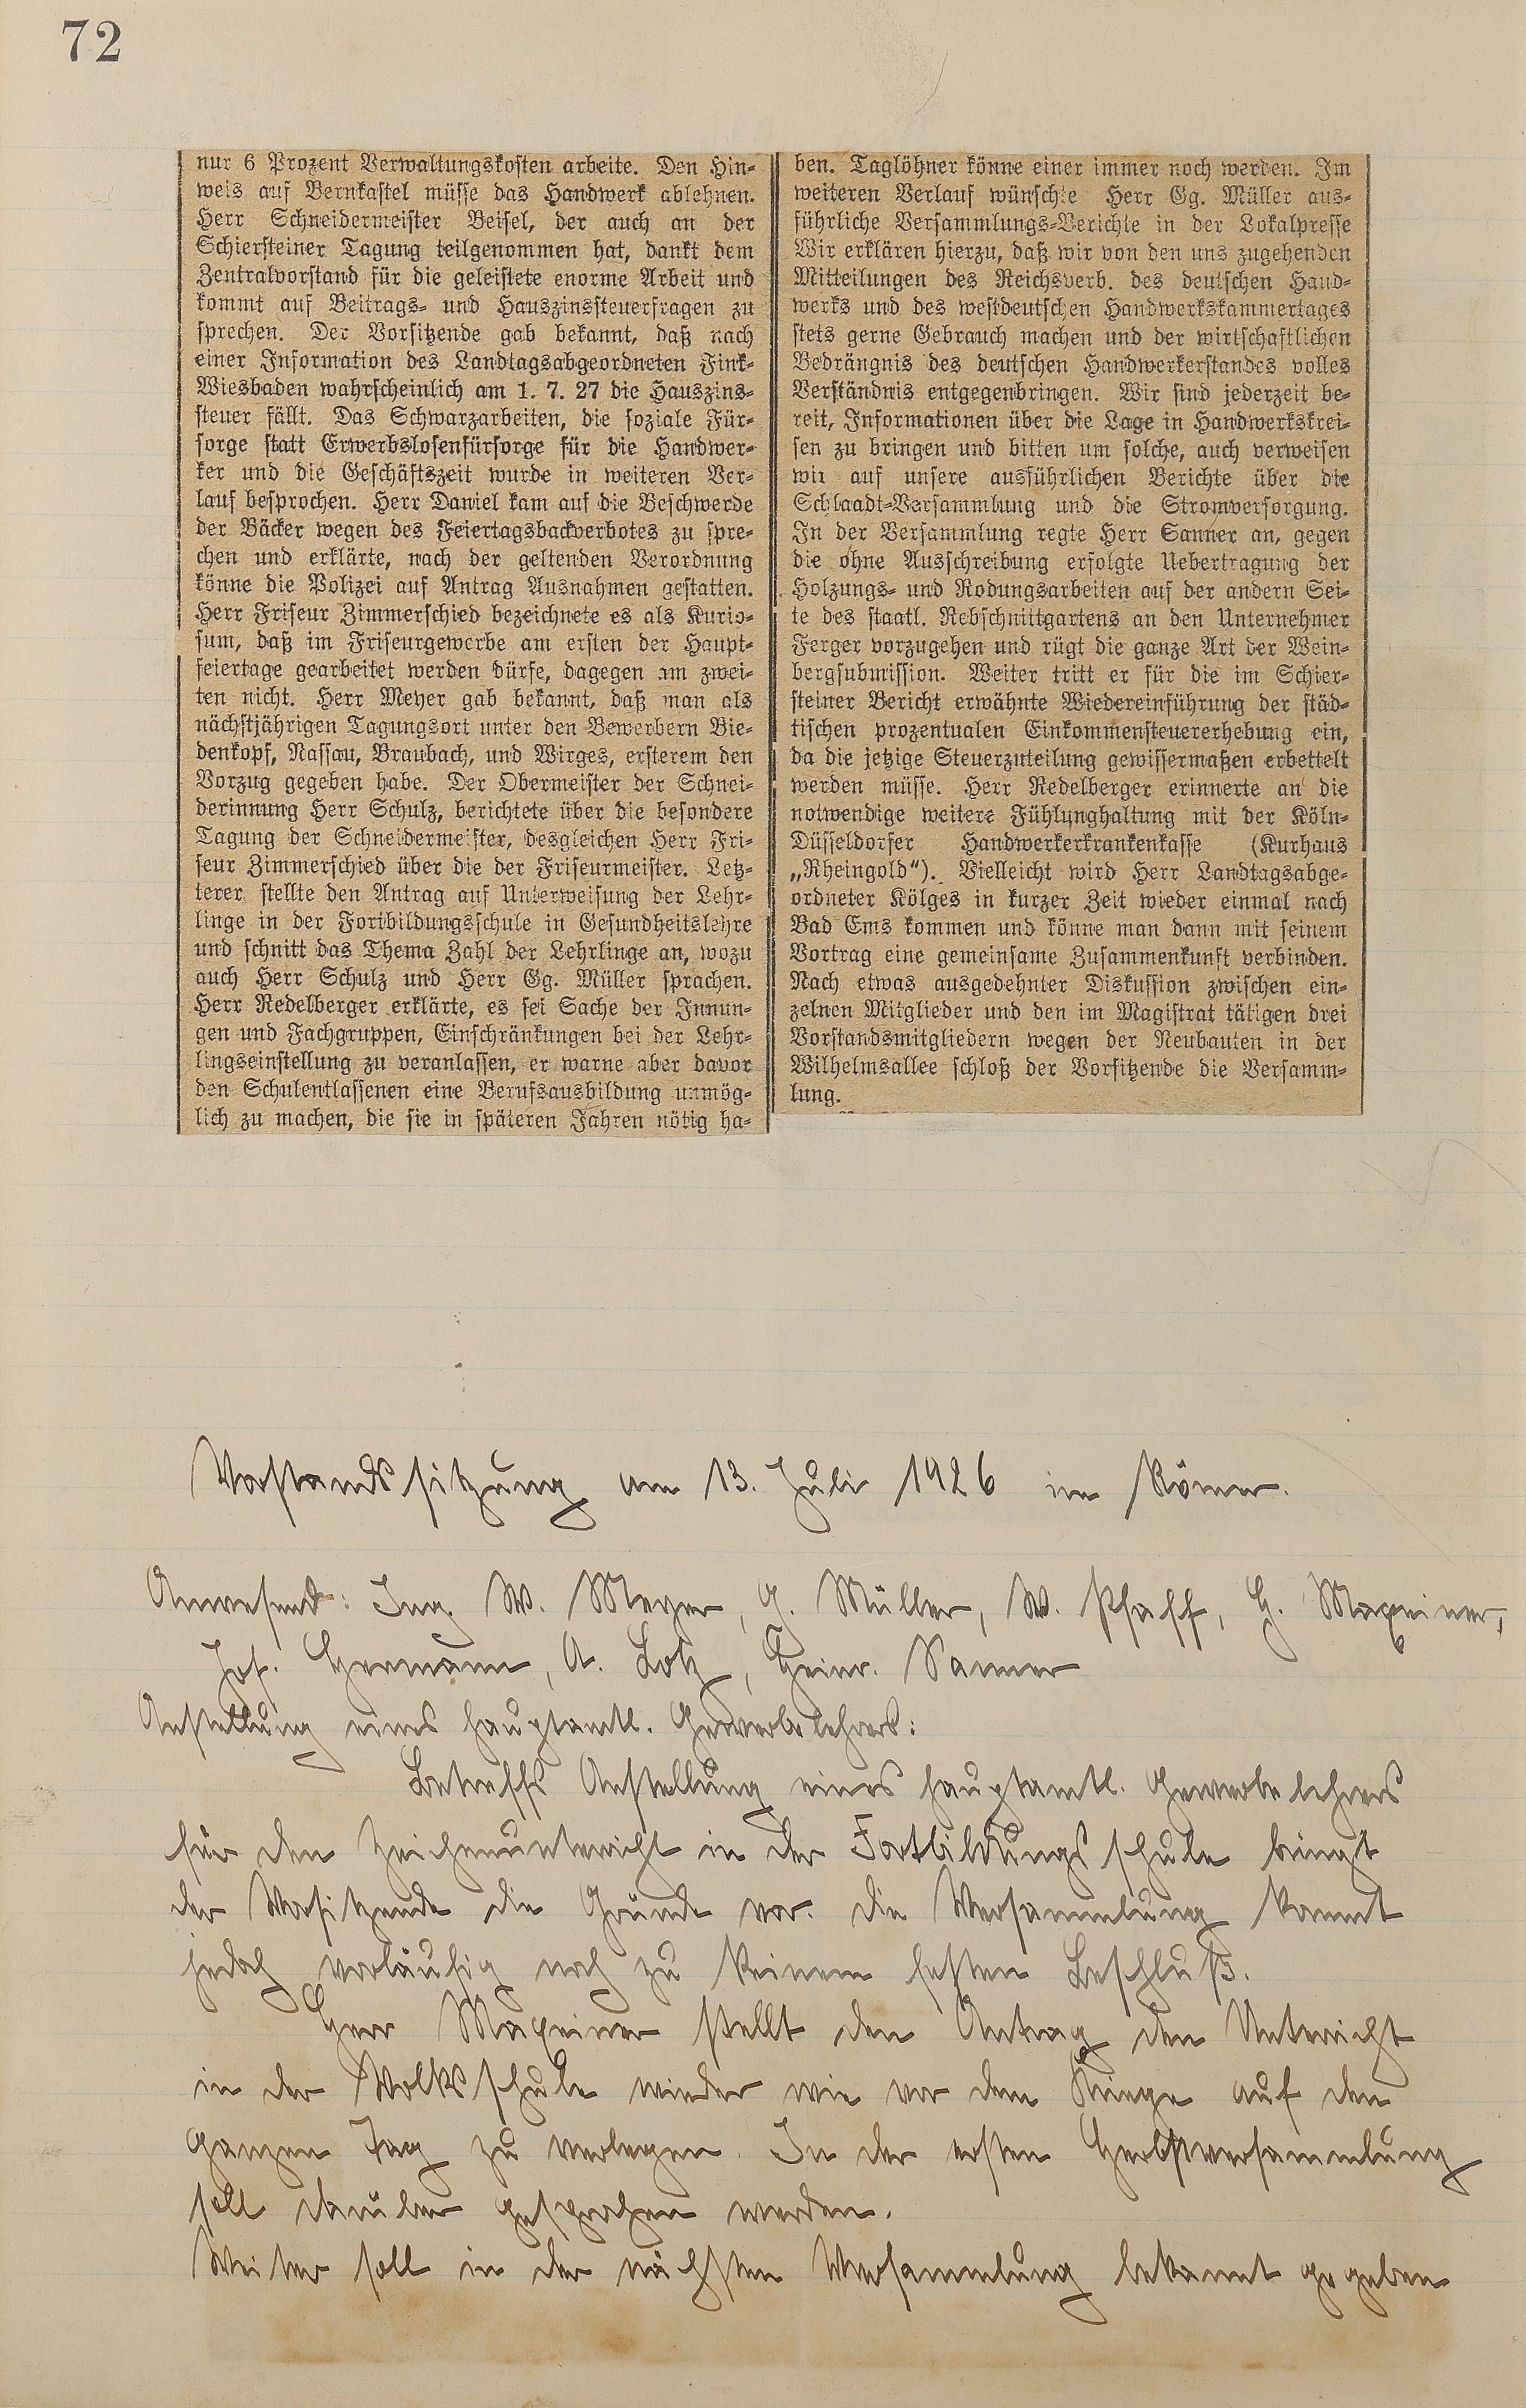 72
nur 6 Prozent Verwaltungskosten arbeite. Den Hin-
weis auf Bernkastel müsse das Handwerk ablehnen.
Herr Schneidermeister Beisel, der auch an der
Schiersteiner Tagung teilgenommen hat, dankt dem
Zentralvorstand für die geleistete enorme Arbeit und
kommt auf Beitrags- und Hauszinssteuerfragen zu
sprechen. Der Vorsitzende gab bekannt, daß nach
einer Information des Landtagsabgeordneten Fink-
Wiesbaden wahrscheinlich am 1. 7. 27 die Hauszins-
steuer fällt. Das Schwarzarbeiten, die soziale Für-
sorge statt Erwerbslosenfürsorge für die Handwer-
ker und die Geschäftszeit wurde in weiteren Ver-
lauf besprochen. Herr Daniel kam auf die Beschwerde
der Bäcker wegen des Feiertagsbackverbotes zu spre-
chen und erklärte, nach der geltenden Verordnung
könne die Polizei auf Antrag Ausnahmen gestatten.
Herr Friseur Zimmerschied bezeichnete es als Kurio-
sum, daß im Friseurgewerbe am ersten der Haupt-
feiertage gearbeitet werden dürfe, dagegen am zwei-
ten nicht. Herr Meyer gab bekannt, daß man als
nächstjährigen Tagungsort unter den Bewerbern Bie-
denkopf, Nassau, Braubach, und Wirges, ersterem den
Vorzug gegeben habe. Der Obermeister der Schnei-
derinnung Herr Schulz, berichtete über die besondere
Tagung der Schneidermeister, desgleichen Herr Fri-
seur Zimmerschied über die der Friseurmeister. Letz-
terer stellte den Antrag auf Unterweisung der Lehr-
linge in der Fortbildungsschule in Gesundheitslehre
und schnitt das Thema Zahl der Lehrlinge an, wozu
auch Herr Schulz und Herr Gg. Müller sprachen.
Herr Redelberger erklärte, es sei Sache der Innun-
gen und Fachgruppen, Einschränkungen bei der Lehr-
lingseinstellung zu veranlassen, er warne aber davor
den Schulentlassenen eine Berufsausbildung unmög-
lich zu machen, die sie in späteren Jahren nötig ha-
ben. Taglöhner könne einer immer noch werden. Im
weiteren Verlauf wünschte Herr Gg. Müller aus-
führliche Versammlungs-Berichte in der Lokalpresse
Wir erklären hierzu, daß wir von den uns zugehenden
Mitteilungen des Reichsverb. des deutschen Hand-
werks und des westdeutschen Handwerkskammertages
stets gerne Gebrauch machen und der wirtschaftlichen
Bedrängnis des deutschen Handwerkerstandes volles
Verständnis entgegenbringen. Wir sind jederzeit be-
reit, Informationen über die Lage in Handwerkskrei-
sen zu bringen und bitten um solche, auch verweisen
wir auf unsere ausführlichen Berichte über die
Schlaadt-Versammlung und die Stromversorgung.
In der Versammlung regte Herr Sanner an, gegen
die ohne Ausschreibung erfolgte Uebertragung der
Holzungs- und Rodungsarbeiten auf der andern Sei-
te des staatl. Rebschnittgartens an den Unternehmer
Ferger vorzugehen und rügt die ganze Art der Wein-
bergsubmission. Weiter tritt er für die im Schier-
steiner Bericht erwähnte Wiedereinführung der städ-
tischen prozentualen Einkommensteuererhebung ein,
da die jetzige Steuerzuteilung gewissermaßen erbettelt
werden müsse. Herr Redelberger erinnerte an die
notwendige weitere Fühlunghaltung mit der Köln-
Düsseldorfer Handwerkerkrankenkasse (Kurhaus
„Rheingold“). Vielleicht wird Herr Landtagsabge-
ordneter Kölges in kurzer Zeit wieder einmal nach
Bad Ems kommen und könne man dann mit seinem
Vortrag eine gemeinsame Zusammenkunft verbinden.
Nach etwas ausgedehnter Diskussion zwischen ein-
zelnen Mitglieder und den im Magistrat tätigen drei
Vorstandsmitgliedern wegen der Neubauten in der
Wilhelmsallee schloß der Vorsitzende die Versamm-
lung.
Vorstandssitzung am 13. Juli 1926 im Römer.
Anwesend: Ing. W. Meyer, G. Müller, W. Pfaff, H. Maxeiner,
Jos. Hermann, A. Lotz, Heinr. Sanner
Anstellung eines hauptamtl. Gewerbelehrers:
Betreffs Anstellung eines hauptamtl. Gewerbelehrers
für den Zeichenunterricht in der Fortbildungsschule bringt
der Vorsitzende die Gründe vor. Die Versammlung kommt
jedoch vorläufig noch zu keinem festen Beschluß.
Herr Maxeiner stellt den Antrag den Unterricht
in der Volksschule wieder wie vor dem Kriege auf den
ganzen Tag zu verlegen. In der ersten Herbstversammlung
soll darüber gesprochen werden.
Weiter soll in der nächsten Versammlung bekannt gegeben